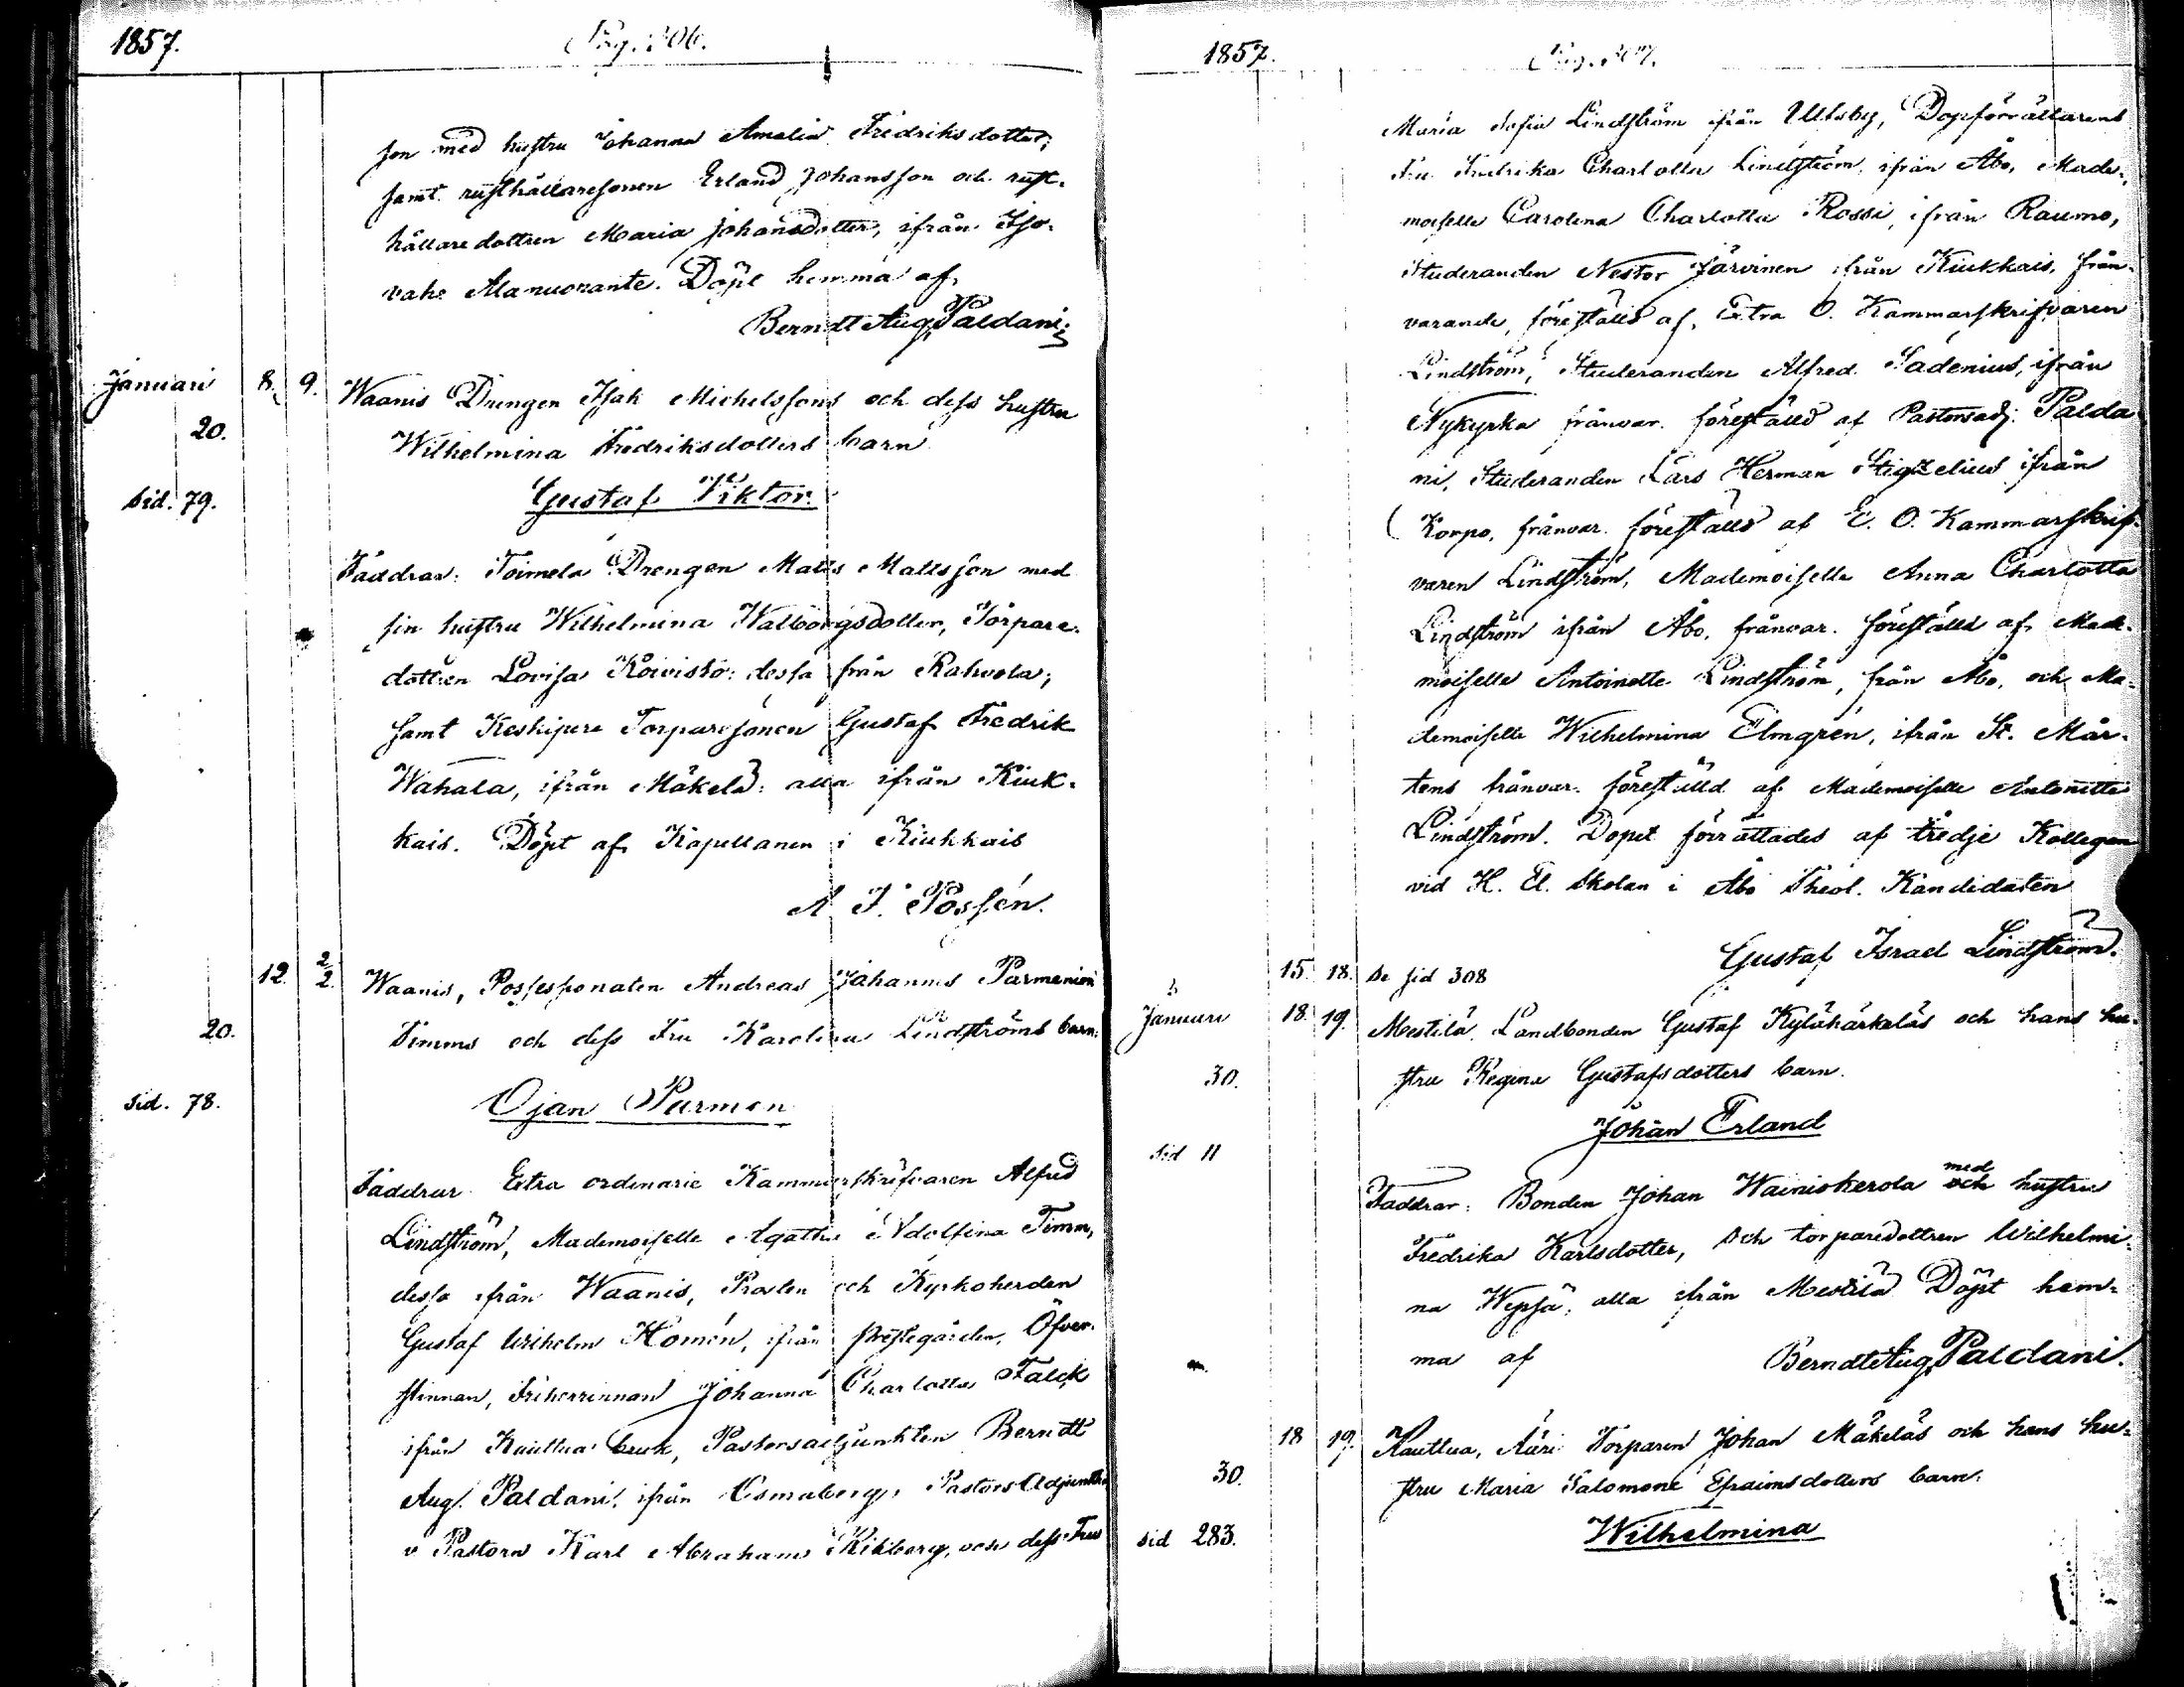 1857.
Pag. 306.
son med hustru Johanna Amalia Fredriksdotter,
samt rusthållaresonen Erland Johansson och rust-
hållaredottren Maria Johansdotter, ifrån Iso-
vahe Alanuorante. Döpt hemma af
Berndt Aug. Paldani.
Januari 8. 9. Waanis Drengen Isak Michelssons och dess hustru
20. Wilhelmina Fredriksdotters barn
Sid. 79. Gustaf Viktor.
Faddrar: Toimela Drengen Matts Mattsson med
sin hustru Wilhelmina Walborgsdotter, Torpare-
dottren Lovisa Koivisto: dessa från Rahvola;
samt Keskipere Torparesonen Gustaf Fredrik
Wahala, ifrån Mäkelä: alla ifrån Kiuk-
kais. Döpt af Kapellanen i Kiukkais
A. F. Possén.
12. 2/2. Waanis, Possessionaten Andreas Johannes Parmenion
20. Timms och dess Fru Karolina Lindströms barn:
Sid. 78. Ojan Parmen
Faddrar Extra ordinarie Kammarskrifvaren Alfred
Lindström, Mademoiselle Agatha Adolfina Timm,
dessa ifrån Waanis, Prosten och Kyrkoherden
Gustaf Wilhelm Homén, ifrån prestegården, Öfver-
stinnan, Friherrinnan Johanna Charlotta Falck
ifrån Kauttua bruk, Pastorsadjunkten Berndt
Aug. Paldani, ifrån Osmaberg, Pastors Adjunkten
v Pastorn Karl Abraham Kihlberg, och dess Fru
1857.
Pag. 307.
Maria Sofia Lindström ifrån Ulfsby, Dopförrättarens
Fru Fredrika Charlotta Lindström, ifrån Åbo, Made-
moiselle Carolina Charlotta Rossi, ifrån Raumo,
Studeranden Nestor Järvinen ifrån Kiukkais, från-
varande, föreställd af Extra O. Kammarskrifvaren
Lindström, Studeranden Alfred Sadenius, ifrån
Nykyrka frånvar. föreställd af Pastorsadj. Palda-
ni, Studeranden Lars Herman Stigzelius ifrån
Korpo, frånvar. föreställd af E. O. Kammarskrif-
varen Lindström, Mademoiselle Anna Charlotta
Lindström ifrån Åbo, frånvar. föreställd af Made-
moiselle Antoinette Lindström, från Åbo, och Ma-
demoiselle Wilhelmina Elmgrén, ifrån St. Mår-
tens frånvar. föreställd af Mademoiselle Antoinette
Lindström. Dopet förrättades af tredje Kollegan
vid H. El. Skolan i Åbo Theol. Kandidaten
Gustaf Israel Lindström.
15. 18. Se sid 308
Januari 18. 19. Mestilä Landbonden Gustaf Kylähärkäläs och hans hu-
30. stru Regina Gustafsdotters barn.
Sid 11 Johan Erland
Faddrar: Bonden Johan Wainiokerola med och hustru
Fredrika Karlsdotter, och torparedottren Wilhelmi-
na Wepsä, alla ifrån Mestilä Döpt hem-
ma af Berndt Aug. Paldani.
18 19. Kauttua, Äüri Torparen Johan Mäkeläs och hans hu-
30. stru Maria Salomone Efraimsdotters barn.
Sid 283. Wilhelmina